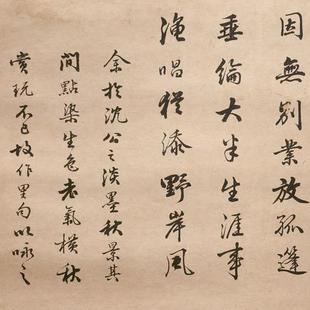 因無別業放孤篷
垂綸大半生涯事
漁唱猶添野岸風
余於沈公之淡墨秋景其
間點染生色老氣橫秋
賞玩不已故作里句以咏之